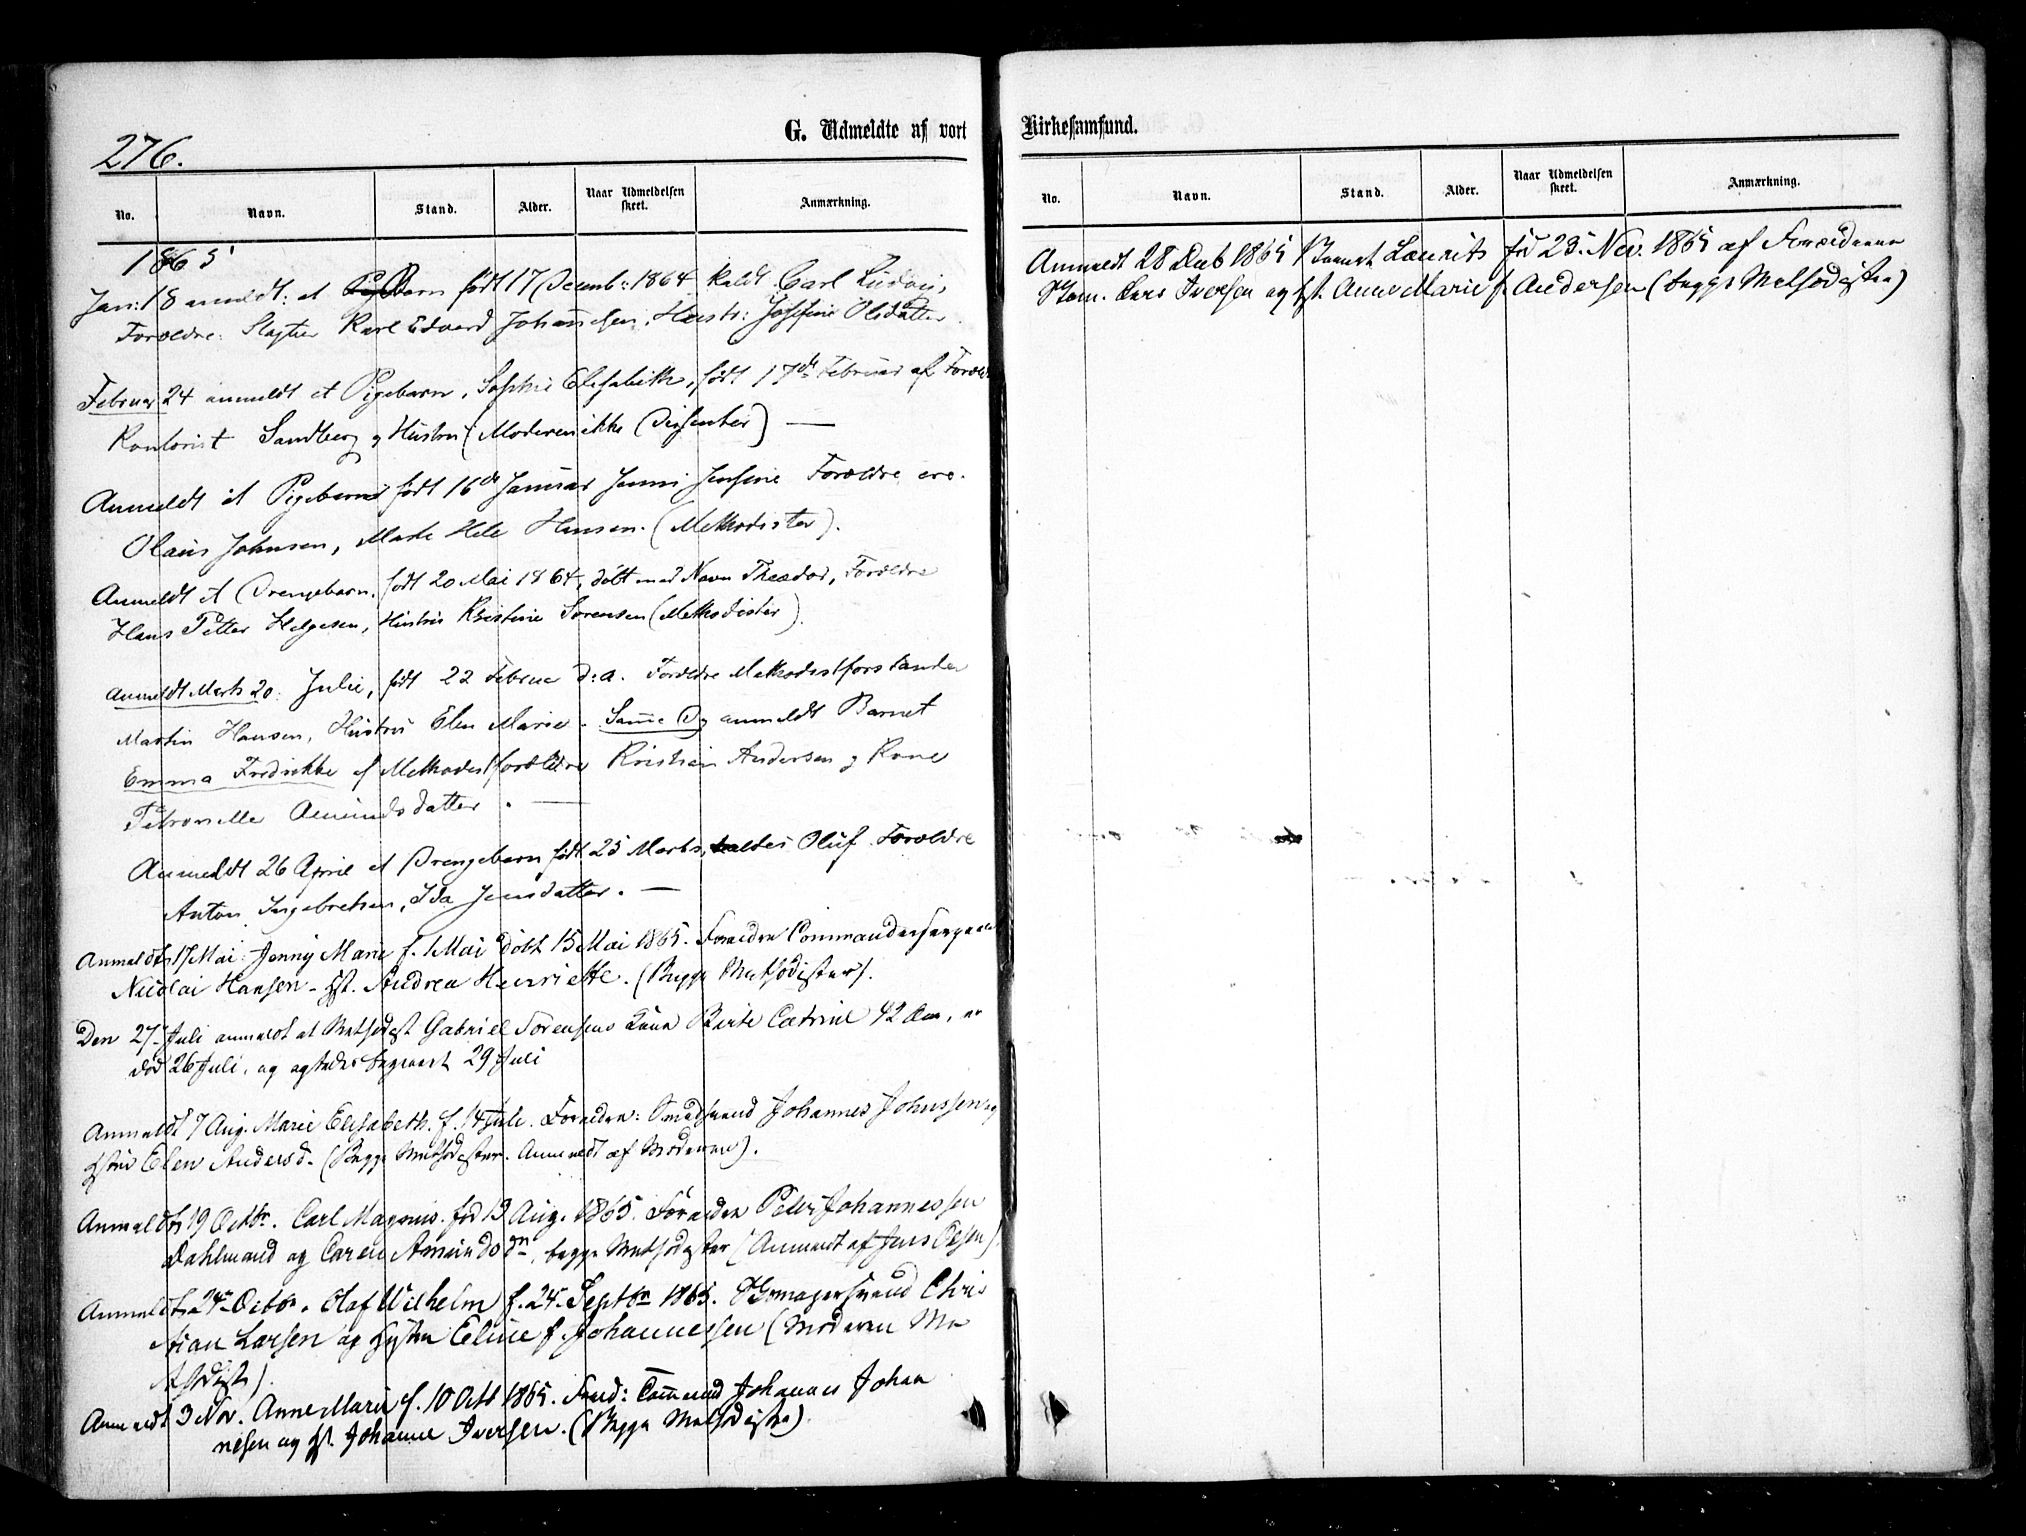 276.
G. Udmeldte af vort
No. Navn. Stand. Alder. Naar Udmeldelsen skeet. Anmærkning.
1865
Jan: 18 anmeldt: et Barn født 17 Decemb: 1864 kaldt Carl Ludvig,
Forældre: Slagter Karl Edvard Johannesen, Hustr: Josefine Olsdatter
Februar 24 anmeldt et Pigebarn, Sophie Elisabeth, født 17de Februar af Foræld
Kontorist Sandberg og Hustru (Moderen ikke Dissenter) —
Anmeldt et Pigebarn født 16de Januar Jenni Josefine Forældre ere.
Olaus Johnsen, Marte Hansen. (Methodister).
Anmeldt et Drengebarn, født 20 Mai 1864, døbt med Navn Theodor, Forældre
Hans Petter Helgesen, Hustru Kristine Sørensen (Methodister).
Anmeldt Marts 20. Julie, født 22 Februar d: a. Forældre Methodistforstander
Martin Hansen, Hustru Elen Marie. Same Dg anmeldt Barnet
Emma Fredrikke af Methodistforældre Kristian Andersen og Kone
Petronelle Amundsdatter. —
Anmeldt 26 April et Drengebarn født 25 Marts, kaldes Oluf Forældre
Anton Ingebretsen, Ida Jensdatter. —
Anmeldt 17 Mai: Jenny Marie f. 1 Mai døbt 15 Mai 1865. Forældre Commandersergeant
Nicolai Hansen - Hst. Andrea Henriette. (Begge Methodister).
Den 27 Juli anmeldt at Methodist Gabriel Sørensens Kone Berte Catrine 42 Aar, er
død 26 Juli, og begravet 29 Juli
Anmeldt 7 Aug. Marie Elisabeth. f. 14 Juli. Forældre: Johannes Johnssen og
Hstru Elen Andersd. (Begge Methodister. Anmeldt af Moderen).
Anmeldt 19 Octbr. Carl Magnus. fød 13 Aug. 1865. Forældre Peter Johannessen
Dahlmand og Caren Amundsdn, begge Methodister (Anmeldt af Jens Olsen)
Anmeldt 24 Octbr. Olaf Wilhelm f. 24 Septbr 1865. Skomagersvend Chris
tian Larsen og Hustru Eline f. Johannessen (Moderen Me
thodist).
Anmeldt 3 Nov. Anne Marie f. 10 Octb 1865. Foræld: Johannes Johan
nesen og Hst. Johanne Iversen. (Begge Methodister).
Kirkesamfund.
No. Navn. Stand. Alder. Naar Udmeldelsen skeet. Anmærkning.
Anmeldt 28 Decb 1865 Barnet Laurits fød 23 Nov. 1865 af Forældrene
Lars Iversen og Hst. Anne Marie f. Andersen (begge Methodister)